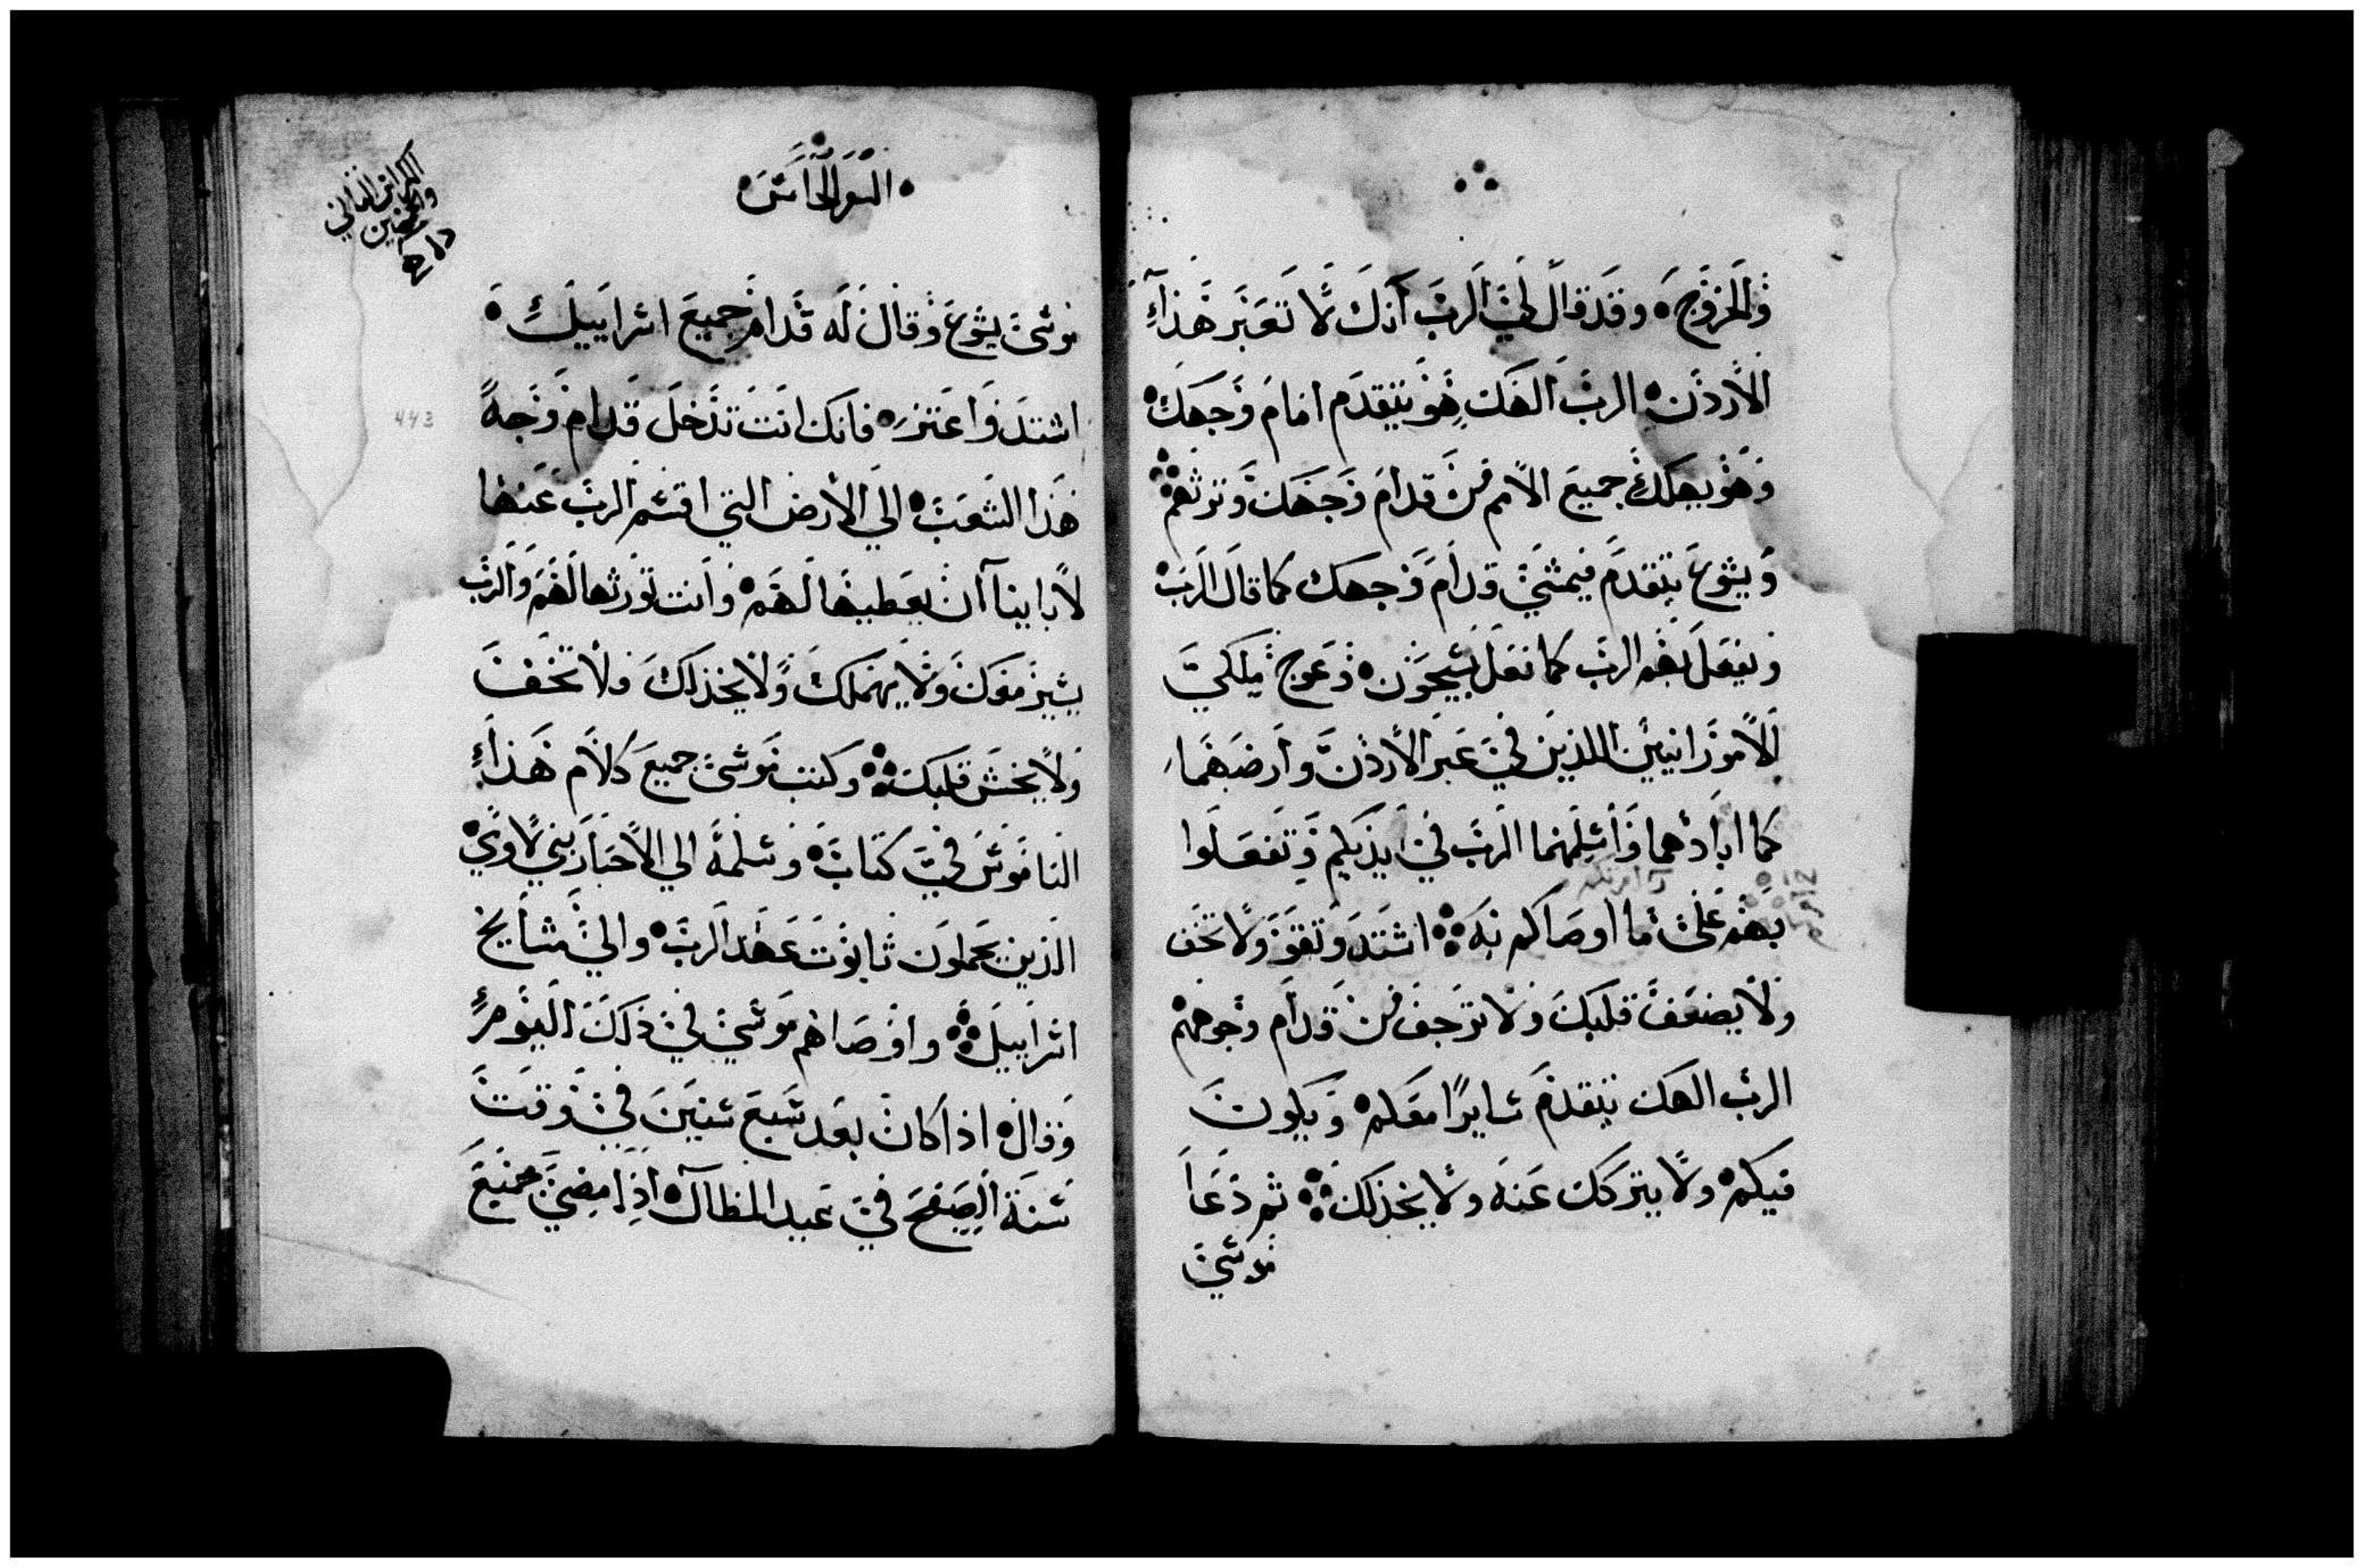 والخروج وقد قال لي الرب انك لا تعبر هذا
الاردن الرب الهك هو يتقدم امام وجهك
وهو يهلك جميع الامم من قدام وجهك وترثهم
ويشوع يتقدم فيمشي قدام وجهك كما قال الرب
ويفعل بهم الرب كما فعل بسيحون وعوج ملكي
الاموزانيين اللذين في عبر الاردن وارضهما
كما ابادهما واسلمهما الرب في ايديكم وتفعلوا
بهم على ما اوصاكم به اشتد وتقو ولا تخف
ولا يضعف قلبك ولا ترجف من قدام وجوههم
الرب الهك يتقدم سايرا معكم ويكون
فيكم ولا يتركك عنه ولا يخذلك ثم دعا
موسي
السفر الخامس
الكراس الثاني
والخمسين
443
موسى يشوع وقال له قدام جميع اسراييل
اشتد واعتز فانك انت تدخل قدام وجه
هذا الشعب الي الارض التي اقسم الرب عنها
لاباينا ان يعطيها لهم وانت تورثها لهم والرب
يسير معك ولا يهملك ولا يخذلك ولا تخف
ولا يخش قلبك وكتب موسى جميع كلام هذا
الناموس في كتاب وسلمه الي الاحبار بني لاوي
الذين يحملون تابوت عهد الرب والي مشايخ
اسراييل واوصاهم موسي في ذلك اليوم
وقال اذا كان بعد سبع سنين في وقت
سنة الصفح في عيد المظال اذا مضي جميع